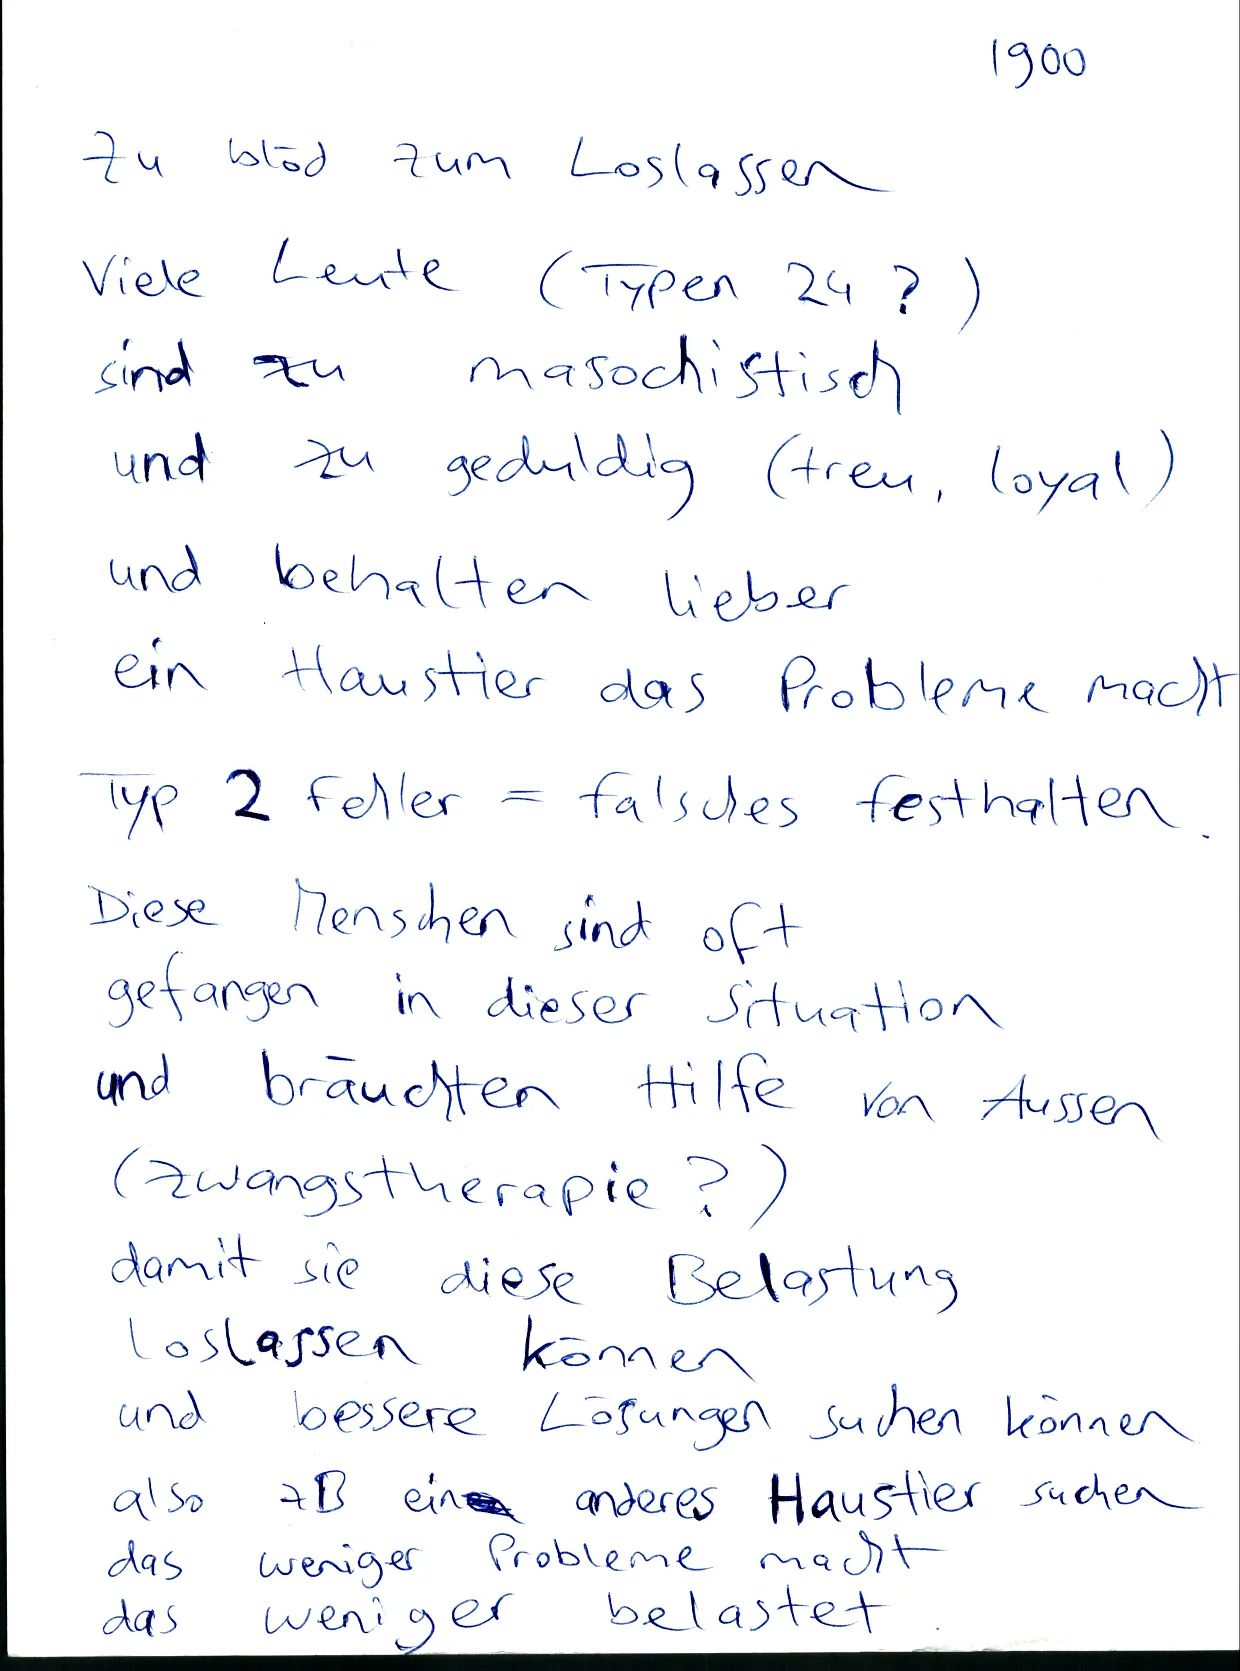 1900
Zu blöd zum Loslassen
Viele Leute (Typen 24 ?)
sind zu masochistisch
und zu geduldig (treu, loyal)
und behalten lieber
ein Haustier das Probleme macht
Typ 2 Fehler = falsches festhalten.
Diese Menschen sind oft
gefangen in dieser Situation
und bräuchten Hilfe von Aussen
(Zwangstherapie ?)
damit sie diese Belastung
Loslassen können
und bessere Lösungen suchen können
also zB ein anderes Haustier suchen
das weniger Probleme macht
das weniger belastet.